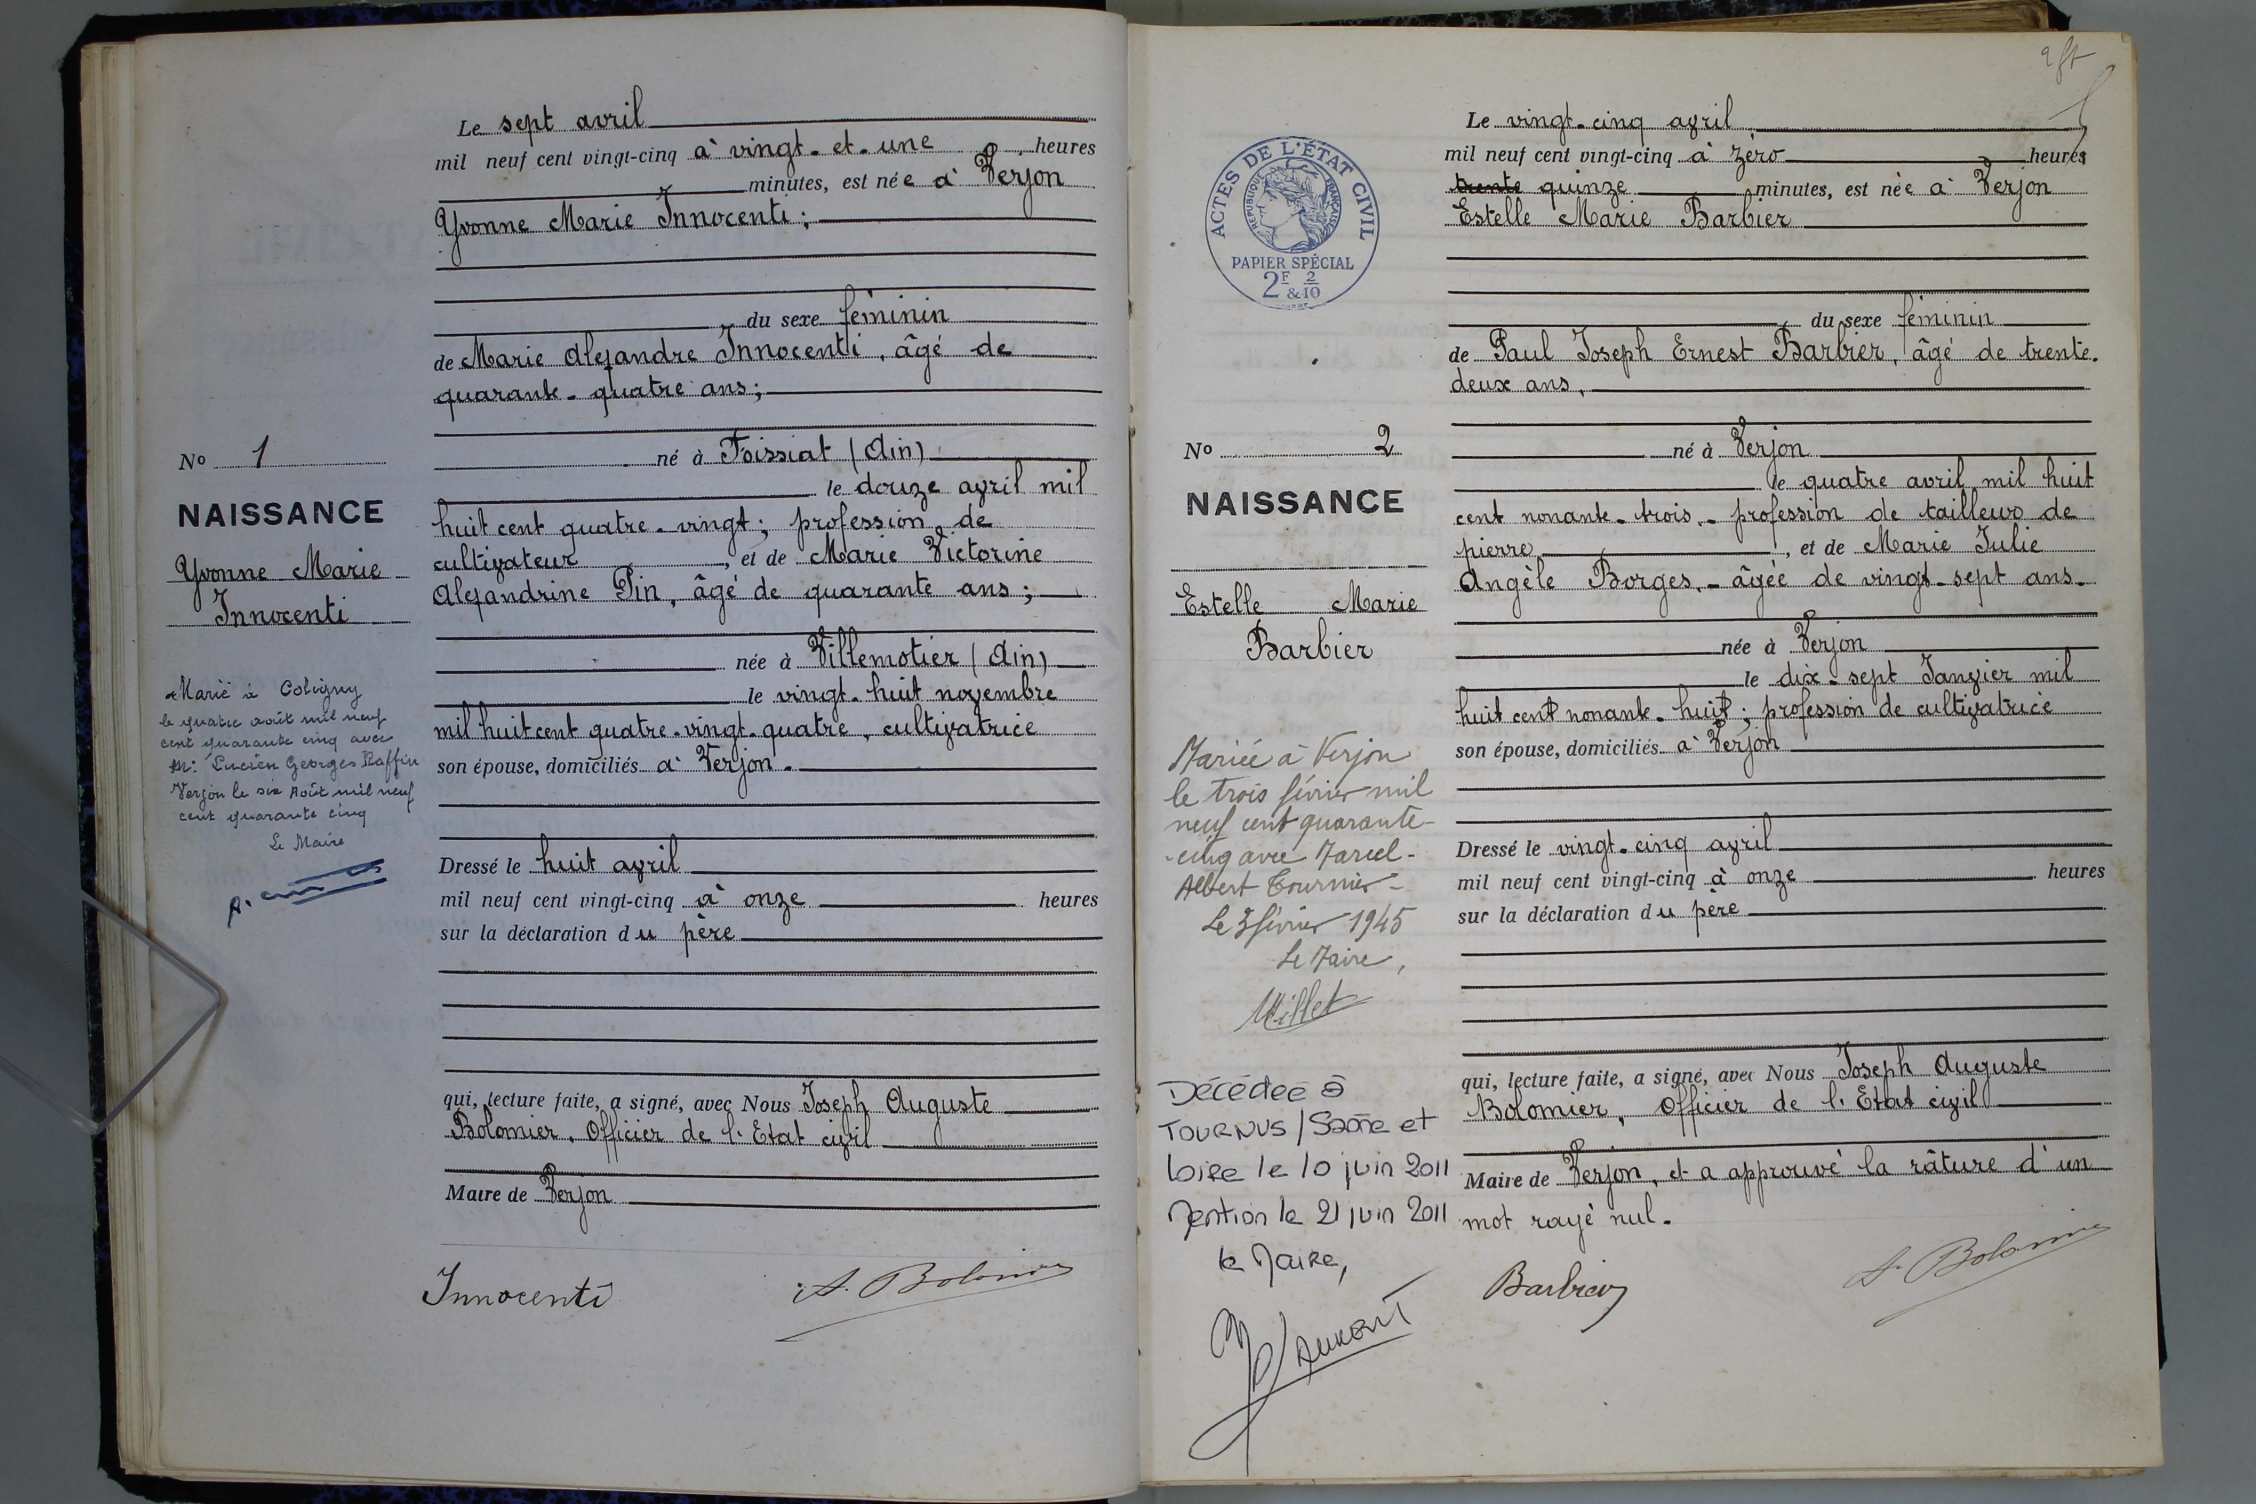 Le sept avril
mil neuf cent vingt-cinq à vingt-et-une heures
minutes, est née à Verjon
Yvonne Marie Innocenti;
du sexe féminin
de Marie Alexandre Innocenti, âgé de
quarante-quatre ans;
né à Foissiat (Ain)
le douze avril mil
huit cent quatre-vingt; profession de
cultivateur, et de Marie Victorine
Alexandrine Pin, âgé de quarante ans;
née à Villemotier (Ain)
le vingt-huit novembre
mil huit cent quatre-vingt-quatre, cultivatrice
son épouse, domiciliés à Verjon.
Dressé le huit avril
mil neuf cent vingt-cinq à onze heures
sur la déclaration du père
qui, lecture faite, a signé, avec Nous Joseph Auguste
Bolomier, Officier de l'Etat civil
Maire de Verjon
Innocenti
A. Bolomier
No 1
NAISSANCE
Yvonne Marie
Innocenti
Marié à Coligny
le quatre août mil neuf
cent quarante cinq avec
M. Lucien Georges Raffin
Verjon le six Août mil neuf
cent quarante cinq
Le Maire
ACTES DE L'ÉTAT CIVIL
RÉPUBLIQUE FRANÇAISE
PAPIER SPÉCIAL
2F & 2/10
No 2
NAISSANCE
Estelle Marie
Barbier
Mariée à Verjon
le trois février mil
neuf cent quarante-
cinq avec Marcel-
Albert Tournier-
Le 3 février 1945
Le Maire,
Millet
Décédée à
TOURNUS / Saône et
Loire le 10 juin 2011
Mention le 21 juin 2011
le Maire,
Le vingt-cinq avril
mil neuf cent vingt-cinq à zéro heures
trente quinze minutes, est née à Verjon
Estelle Marie Barbier
du sexe féminin
de Paul Joseph Ernest Barbier, âgé de trente-
deux ans,
né à Verjon
le quatre avril mil huit
cent nonante-trois,- profession de tailleur de
pierre, et de Marie Julie
Angèle Borges,- âgée de vingt-sept ans-
née à Verjon
le dix-sept Janvier mil
huit cent nonante-huit; profession de cultivatrice
son épouse, domiciliés à Verjon
Dressé le vingt-cinq avril
mil neuf cent vingt-cinq à onze heures
sur la déclaration du père
qui, lecture faite, a signé, avec Nous Joseph Auguste
Bolomier, Officier de l'Etat civil
Maire de Verjon, et a approuvé la râture d'un
mot rayé nul.
Barbier
A. Bolomier